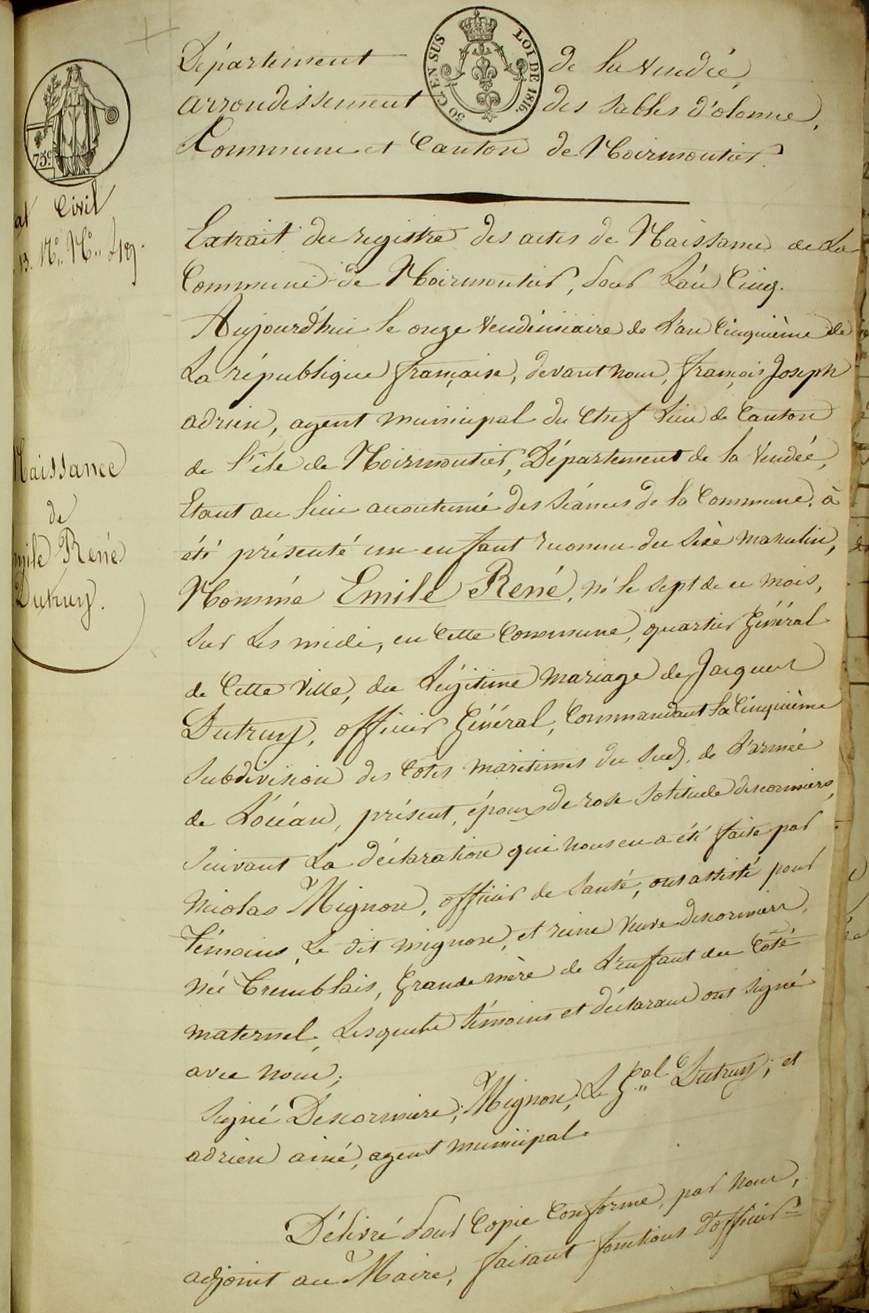 Département de la Vendée,
arrondissement des Sables d'olonne,
Commune et Canton de Noirmoutier.
50 C. EN SUS LOI DE 1816.
75c
Civil
Extrait du registre des actes de Naissance de la
Commune de Noirmoutier, pour L'an Cinq.
Aujourd'hui le onze Vendémiaire de l'an Cinquième de
La république française, devant nous, françois Joseph
adrien, agent municipal du Chef Lieu de Canton
de l'île de Noirmoutier, Département de la Vendée,
Etant au lieu accoutumé des Séances de la Commune, à
été présenté un enfant reconnu du Sèxe masculin,
Nommé Emile René, né le sept de ce mois,
Sur les midi, en Cette Commune, quartier Général
de Cette Ville, du Légitime mariage de Jacques
Dutruy, officier Général, Commandant la Cinquième
Subdivision des Côtes maritimes du Sud, de l'armée
de L'océan, présent, époux de rose Solitude descormiers,
Suivant La déclaration qui nous en a été faite par
Nicolas Mignon, officier de Santé, ont assisté pour
témoins, Le dit mignon, et reine Veuve descormiers,
née Tremblais, Grande mère de l'enfant du Côté
maternel, Lesquels témoins et déclarant ont signé
avec nous;
Signé Descormiere, Mignon, Le Gal Dutruy, et
adrien ainé, agent municipal.
Délivré pour Copie Conforme, par nous,
adjoint au Maire, faisant fonctions d'officier
Naissance
de
Emile René
Dutruy.